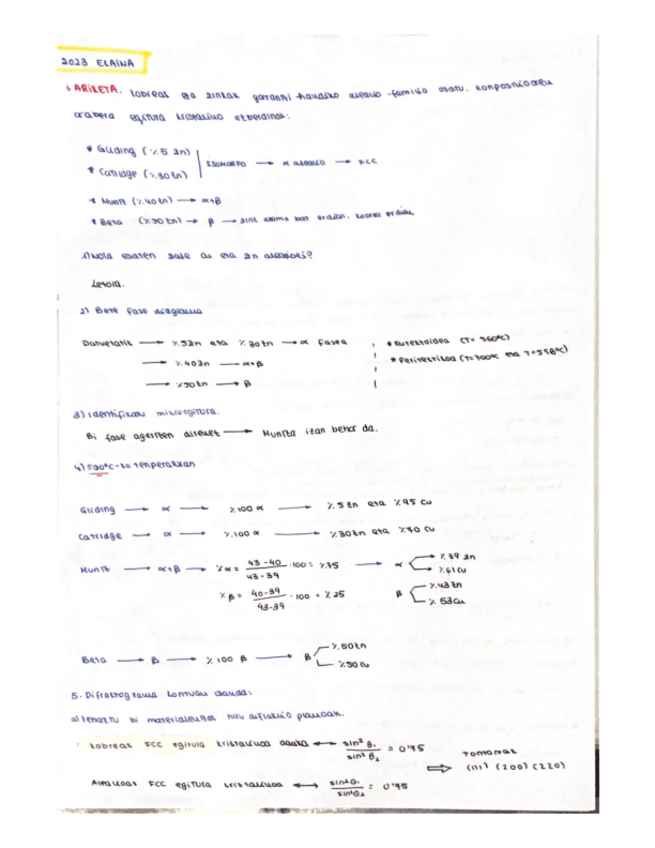 2023 ELAINA
1. ARIKETA. Kobreak eta zinkak garrantzi handiko aleazio-familia osatu. Konposizioaren
arabera egitura kristalino ezberdinak:
* Gilding (%5 Zn)
* Catridge (%30 Zn)
ISOMORFO → α aleazio → FCC
* Muntz (%40 Zn) → α+β
* Beta (%50 Zn) → β → zink atomo bat erdian, kobrea erdian
1) Nola esaten zaie Cu eta Zn aleazioei?
Letoia.
2) Bete fase diagrama
Datuetatik → %5Zn eta %30Zn → α fasea
→ %40Zn → α+β
→ %50Zn → β
* Eutektoidea (T= 560°C)
* Peritektikoa (T=700°C eta T=558°C)
3) Identifikatu mikroegitura.
Bi fase agertzen direnez → Muntza izan behar da.
4) 500°C-ko tenperaturan
Gilding → α → %100 α → %5 Zn eta %95 Cu
Catridge → α → %100 α → %30 Zn eta %70 Cu
Muntz → α+β → %α = 43-40 / 43-39 · 100 = %75 → α → %39 Zn
→ %61 Cu
%β = 40-39 / 43-39 · 100 = %25 β → %43 Zn
→ %53Cu
Beta → β → %100 β → β → %50Zn
→ %50 Cu
5. Difraktograma kontuan izanda:
a) Izendatu bi materialentzat hiru difrakzio planoak.
Kobreak FCC egitura kristalinoa dauka ↔ sin² θ₁ / sin² θ₂ = 0'75
Aleazioak FCC egitura kristalinoa ↔ sin²θ₁ / sin²θ₂ = 0'75
⇒ (111) (200) (220)